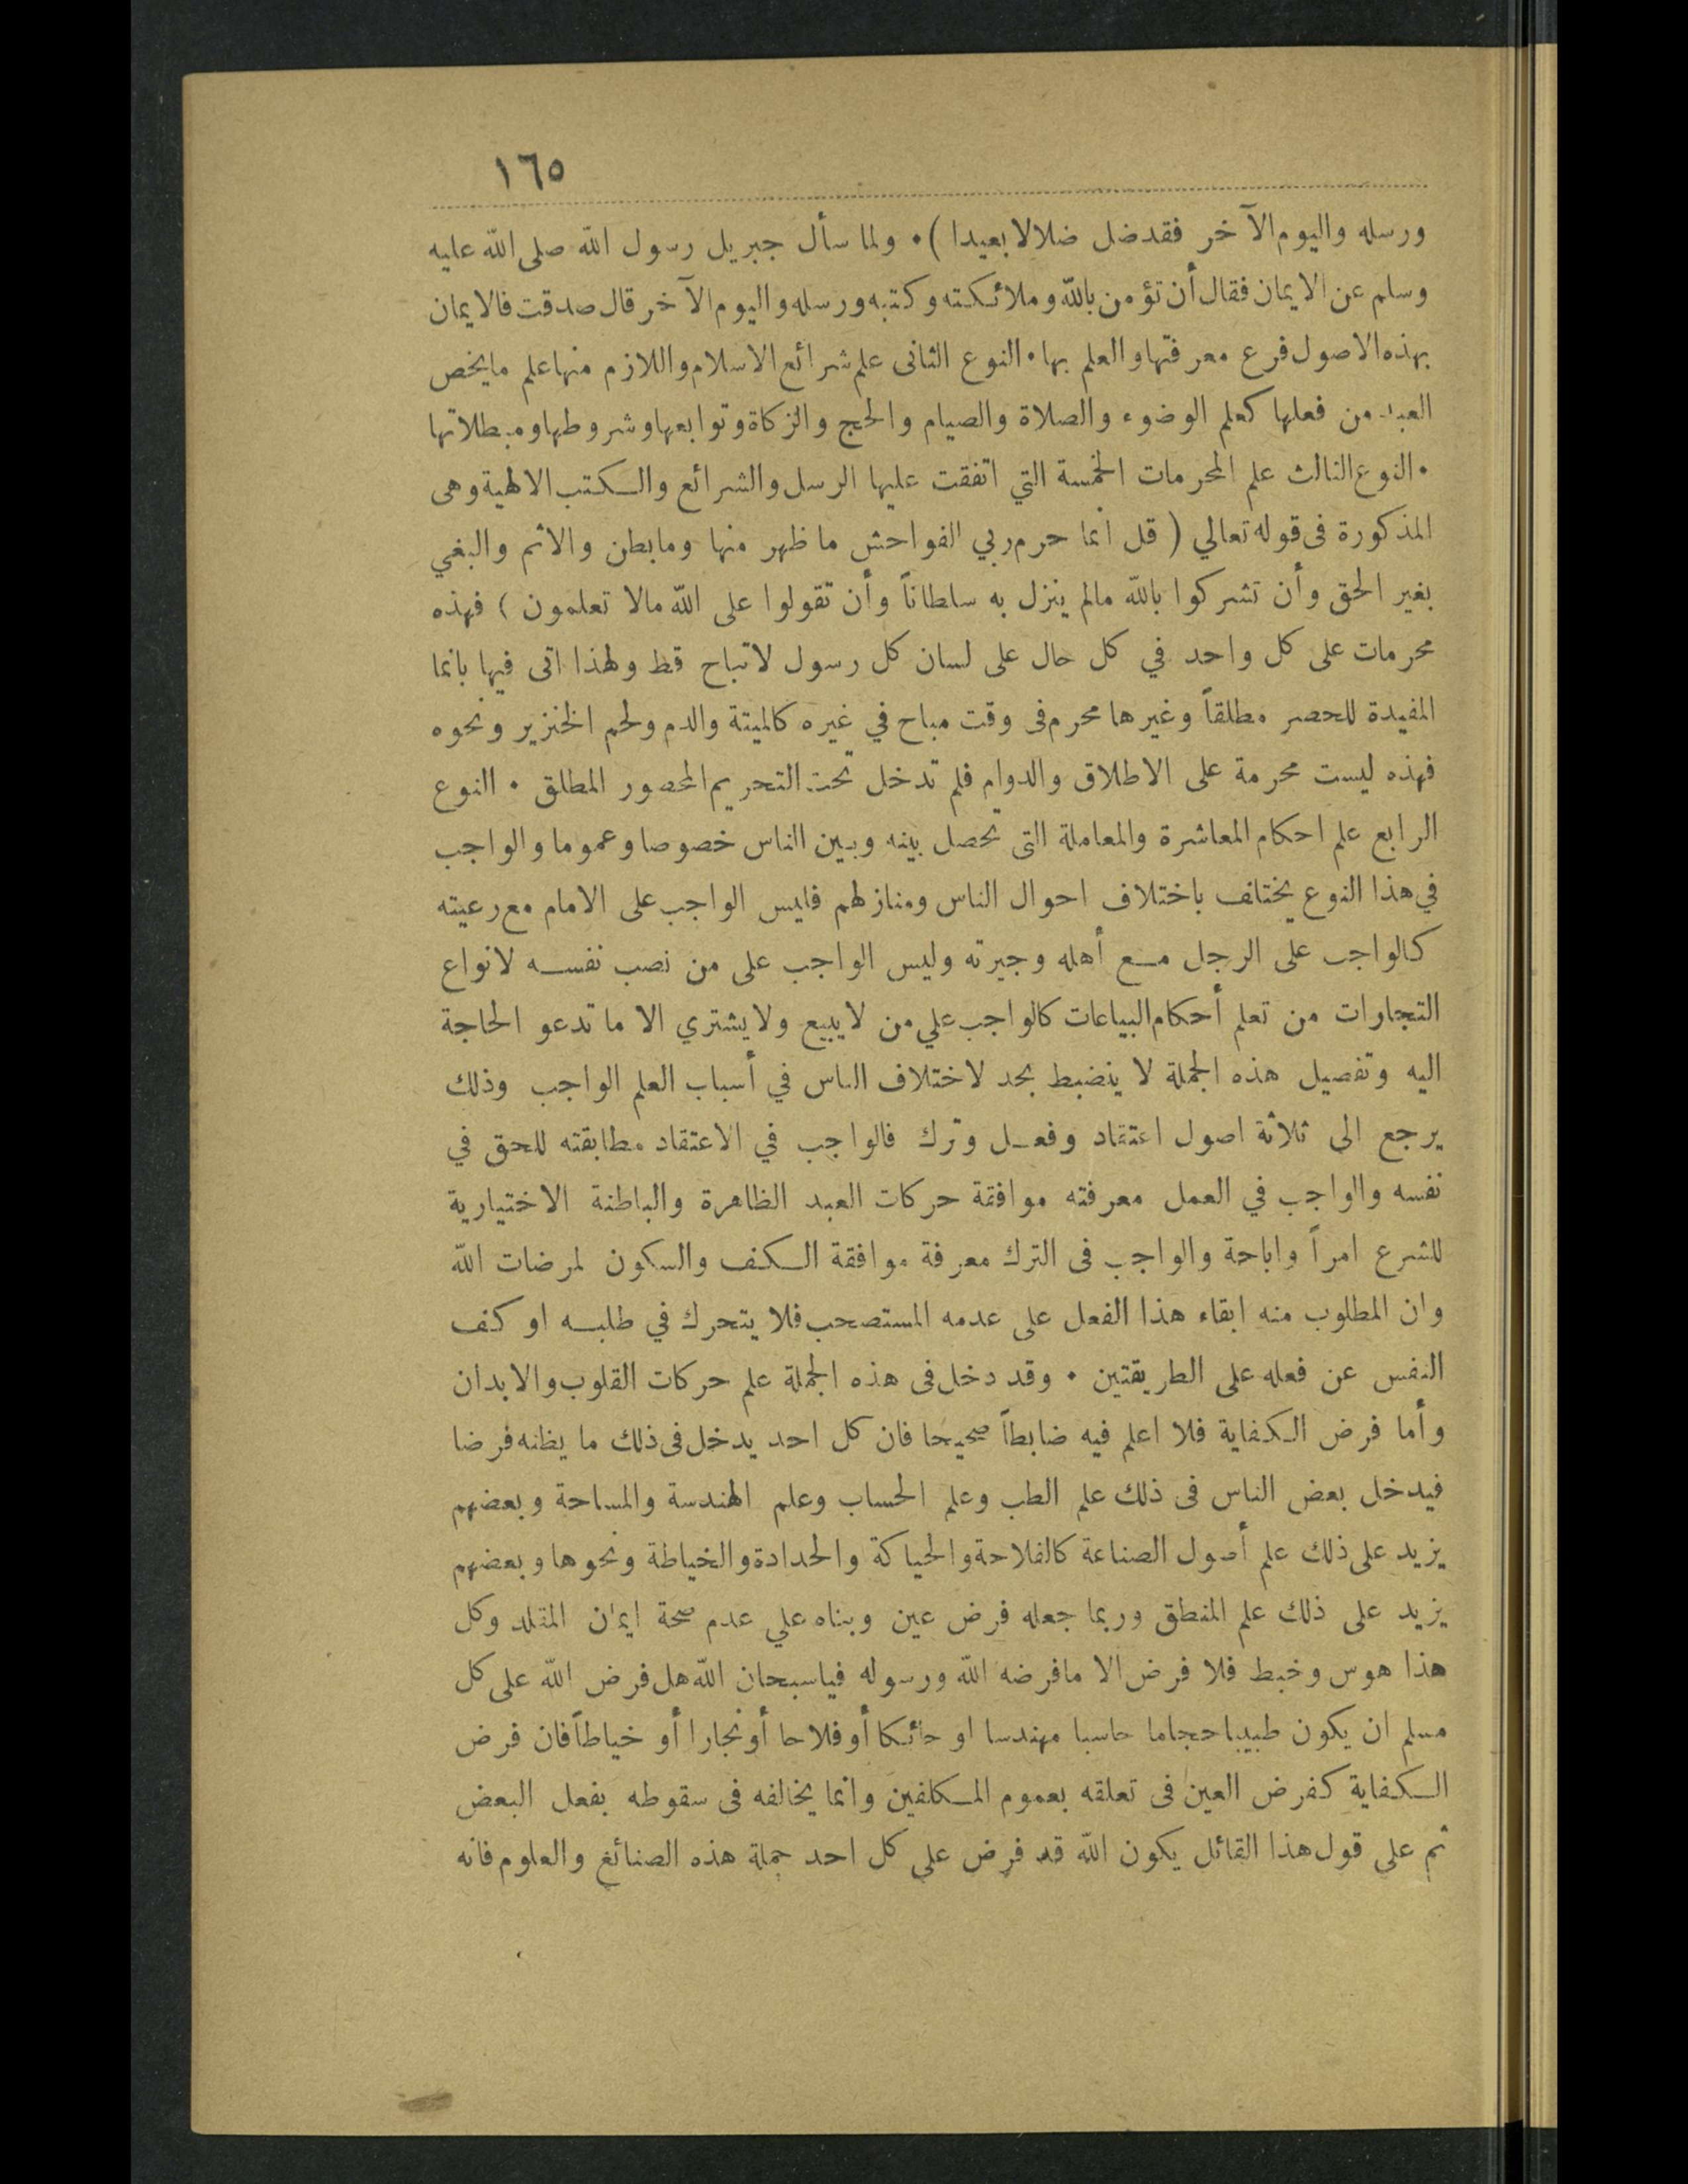 ١٦٥
ورسله واليوم الآخر فقد ضل ضلالا بعيدا ) ٠ ولما سأل جبريل رسول الله صلى الله عليه
وسلم عن الايمان فقال أن تؤمن بالله وملائكته وكتبه ورسله واليوم الآخر قال صدقت فالايمان
بهذه الاصول فرع معرفتها والعلم بها ٠ النوع الثانى علم شرائع الاسلام واللازم منها علم ما يخص
العبد من فعلها كعلم الوضوء والصلاة والصيام والحج والزكاة وتوابعها وشروطها ومبطلاتها
٠ النوع الثالث علم المحرمات الخمسة التي اتفقت عليها الرسل والشرائع والكتب الالهية وهى
المذكورة فى قوله تعالي ( قل انما حرم ربي الفواحش ما ظهر منها وما بطن والاثم والبغي
بغير الحق وأن تشركوا بالله مالم ينزل به سلطاناً وأن تقولوا على الله مالا تعلمون ) فهذه
محرمات على كل واحد في كل حال على لسان كل رسول لا تباح قط ولهذا اتى فيها بانما
المفيدة للحصر مطلقاً وغيرها محرم فى وقت مباح في غيره كالميتة والدم ولحم الخنزير ونحوه
فهذه ليست محرمة على الاطلاق والدوام فلم تدخل تحت التحريم المحصور المطلق ٠ النوع
الرابع علم احكام المعاشرة والمعاملة التى تحصل بينه وبين الناس خصوصا وعموما والواجب
في هذا النوع يختلف باختلاف احوال الناس ومنازلهم فليس الواجب على الامام مع رعيته
كالواجب على الرجل مع أهله وجيرته وليس الواجب على من نصب نفسه لانواع
التجارات من تعلم أحكام البياعات كالواجب علي من لا يبيع ولا يشتري الا ما تدعو الحاجة
اليه وتفصيل هذه الجملة لا ينضبط بحد لاختلاف الناس في أسباب العلم الواجب وذلك
يرجع الى ثلاثة اصول اعتقاد وفعل وترك فالواجب في الاعتقاد مطابقته للحق في
نفسه والواجب في العمل معرفته موافقة حركات العبد الظاهرة والباطنة الاختيارية
للشرع امراً واباحة والواجب فى الترك معرفة موافقة الكف والسكون لمرضات الله
وان المطلوب منه ابقاء هذا الفعل على عدمه المستصحب فلا يتحرك في طلبه او كف
النفس عن فعله على الطريقتين ٠ وقد دخل فى هذه الجملة علم حركات القلوب والابدان
وأما فرض الكفاية فلا اعلم فيه ضابطاً صحيحا فان كل احد يدخل فى ذلك ما يظنه فرضا
فيدخل بعض الناس فى ذلك علم الطب وعلم الحساب وعلم الهندسة والمساحة وبعضهم
يزيد على ذلك علم أصول الصناعة كالفلاحة والحياكة والحدادة والخياطة ونحوها وبعضهم
يزيد على ذلك علم المنطق وربما جعله فرض عين وبناه علي عدم صحة ايمان المقلد وكل
هذا هوس وخبط فلا فرض الا ما فرضه الله ورسوله فياسبحان الله هل فرض الله على كل
مسلم ان يكون طبيبا حجاما حاسبا مهندسا او حائكا أو فلاحا أو نجارا أو خياطاً فان فرض
الكفاية كفرض العين فى تعلقه بعموم المكلفين وانما يخالفه فى سقوطه بفعل البعض
ثم على قول هذا القائل يكون الله قد فرض على كل احد جملة هذه الصنائع والعلوم فانه